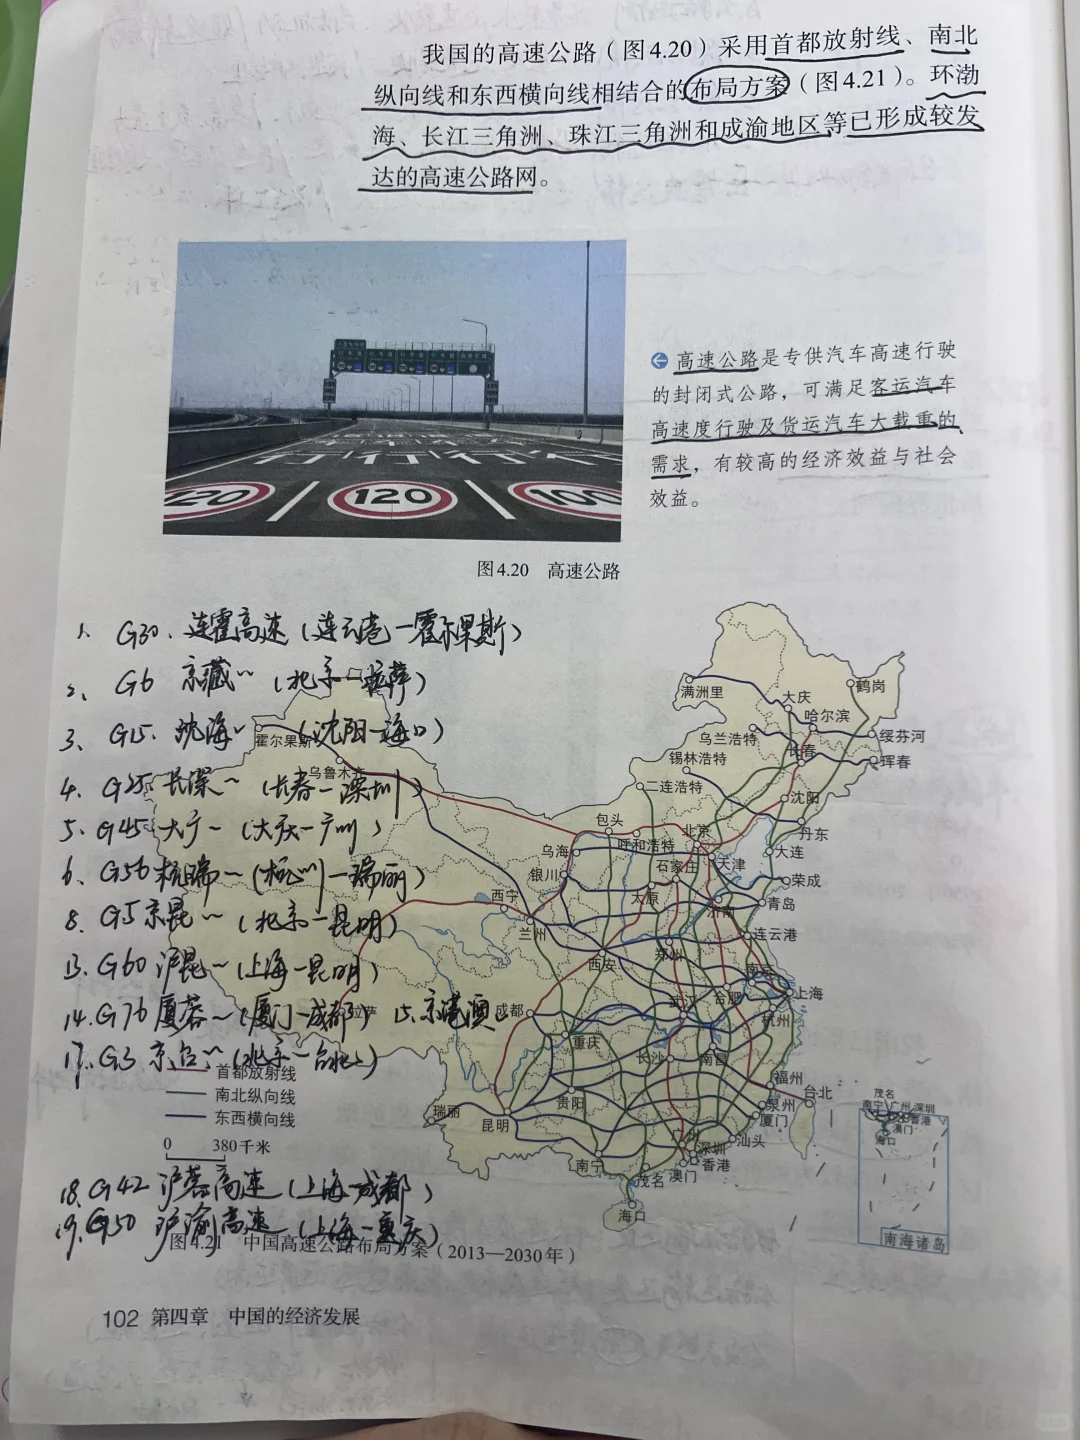 我国的高速公路（图4.20）采用首都放射线、南北
纵向线和东西横向线相结合的布局方案（图4.21）。环渤
海、长江三角洲、珠江三角洲和成渝地区等已形成较发
达的高速公路网。
高速公路是专供汽车高速行驶
的封闭式公路，可满足客运汽车
高速度行驶及货运汽车大载重的
需求，有较高的经济效益与社会
效益。
行 行 行
120 120 100
图4.20 高速公路
1. G30. 连霍高速（连云港—霍尔果斯）
2、 G6 京藏~（北京—拉萨）
3、 G15. 沈海~（沈阳—海口）
4. G25 长深~（长春—深圳）
5、G45 大广~（大庆—广州）
6、G56 杭瑞~（杭州—瑞丽）
8. G5 京昆~（北京—昆明）
13. G60 沪昆~（上海—昆明）
14. G76 厦蓉~（厦门—成都） 15. 京港澳~
17. G3 京台~（北京—台北）
18. G42 沪蓉高速（上海—成都）
19. G50 沪渝高速（上海—重庆）
满洲里
大庆
鹤岗
哈尔滨
绥芬河
乌兰浩特
长春
珲春
锡林浩特
二连浩特
沈阳
丹东
霍尔果斯
乌鲁木齐
包头
呼和浩特
北京
大连
乌海
石家庄
天津
银川
荣成
太原
济南
青岛
西宁
兰州
连云港
西安
郑州
南京
拉萨
成都
武汉
合肥
上海
杭州
重庆
长沙
南昌
福州
台北
贵阳
泉州
瑞丽
昆明
厦门
广州
汕头
深圳
南宁
香港
茂名
澳门
海口
茂名
南宁
广州
深圳
香港
澳门
海口
南海诸岛
首都放射线
南北纵向线
东西横向线
0 380千米
图4.21 中国高速公路布局方案（2013—2030年）
102 第四章 中国的经济发展